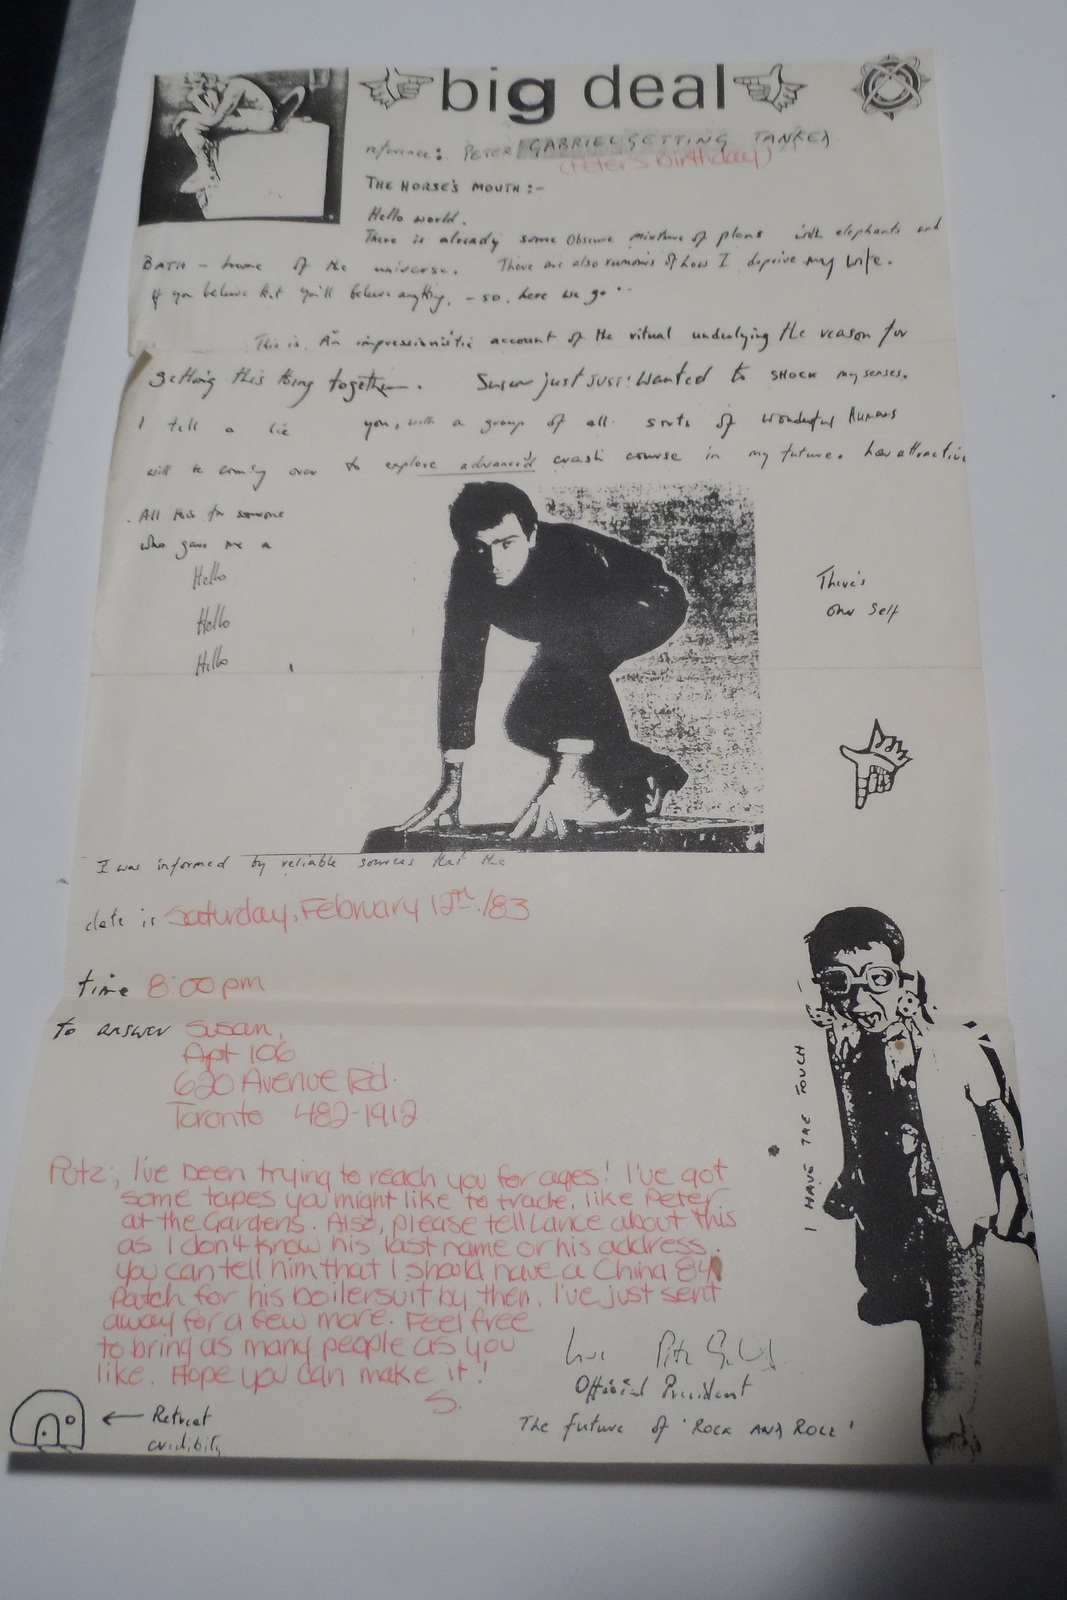 big deal
reference: PETER GABRIEL GETTING TANKED
(Peter's Birthday)
THE HORSE'S MOUTH :-
Hello world.
There is already some Obscure mixture of plans with elephants and
BATH - home of the universe. There are also rumours of how I deprive my wife.
If you believe that you'll believe anything. - so, here we go..
This is An impressionistic account of the ritual underlying the reason for
getting this thing together. Susan just JUST! Wanted to SHOCK my senses.
I tell a lie you, with a group of all sorts of wonderful Humans
will be coming over to explore advanced crash course in my future. How attractive
. All this for someone
who gave me a
Hello
Hello
Hello
There's
One Self
I was informed by reliable sources that the
date is Saturday, February 12th./83
time 8:00 pm
to answer Susan,
Apt 106
620 Avenue Rd.
Toronto 482-1912
I HAVE THE TOUCH
Putz, I've been trying to reach you for ages! I've got
some tapes you might like to trade, like Peter
at the Gardens. Also, please tell Lance about this
as I don't know his last name or his address.
You can tell him that I should have a China 84
Patch for his boilersuit by then. I've just sent
away for a few more. Feel free
to bring as many people as you
like. Hope you can make it!
S.
love
Official President
The future of 'ROCK AND ROLL'
← Retreat
credibility